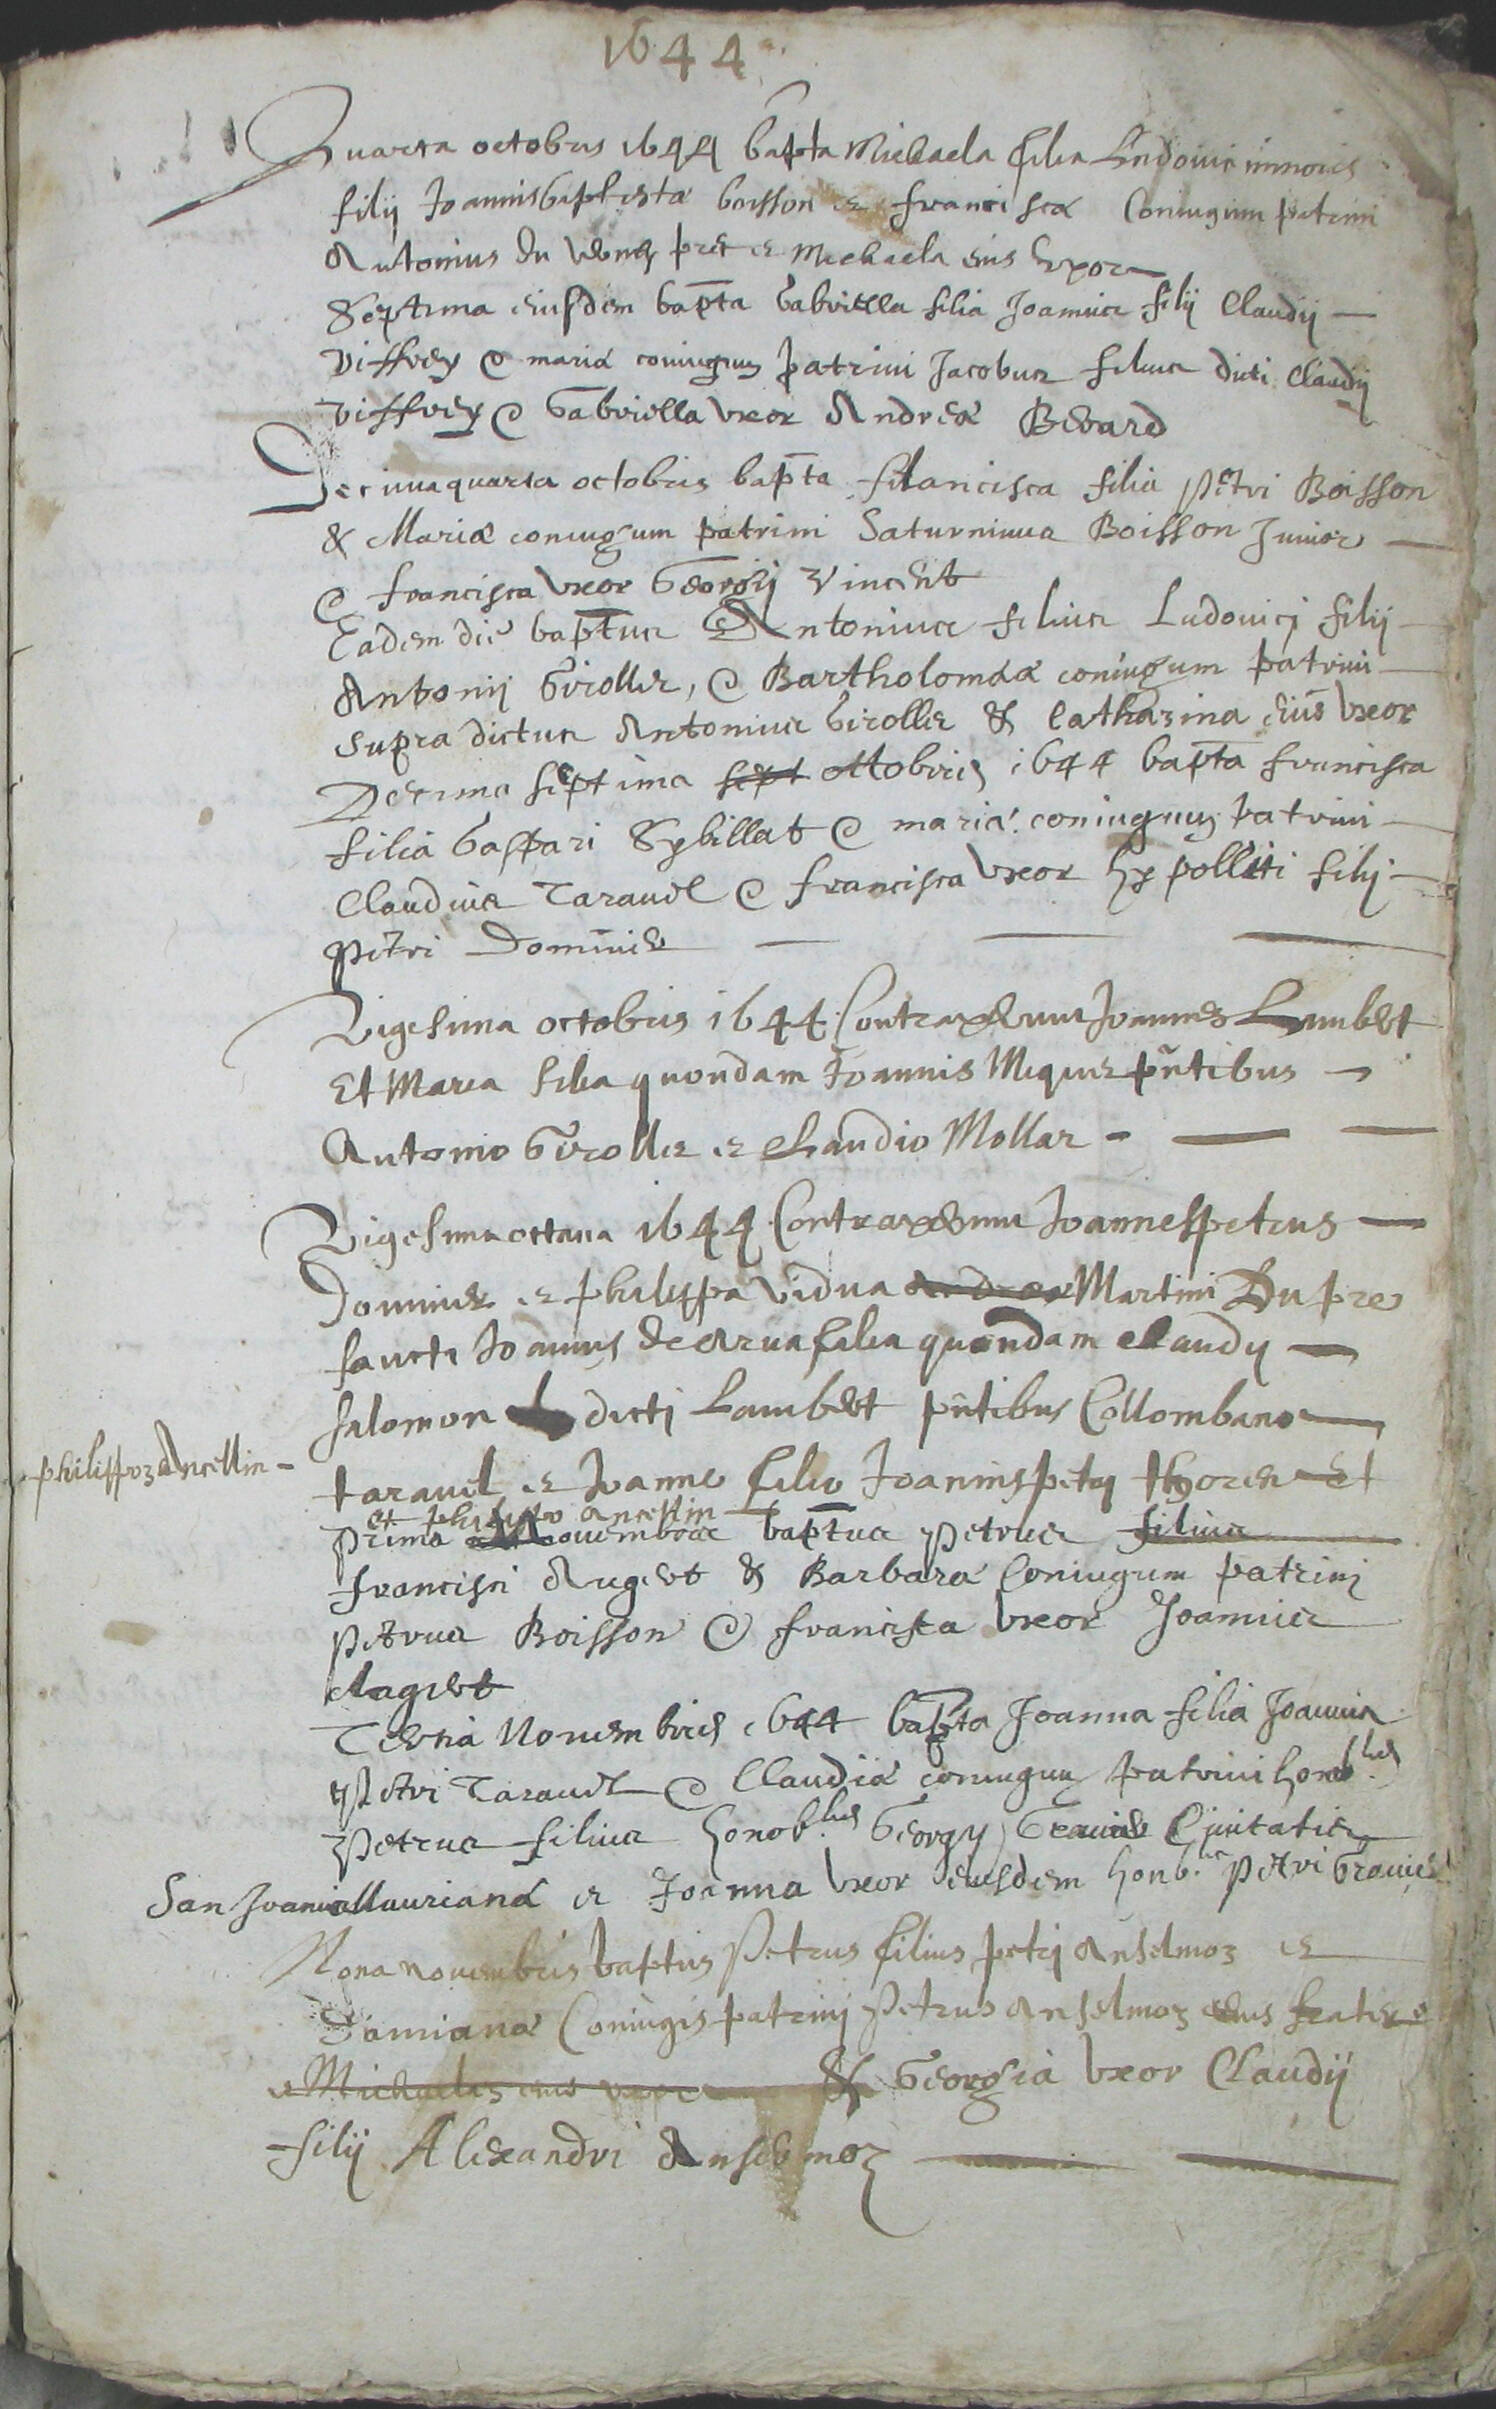 1644
Quarta octobris 1644 bapta Michaela filia Ludovici minoris
filij Joannisbaptista boisson et francisca Coniugum patrini
Antonius du pret et Michaela eius Uxor
Septima eiusdem bapta Gabriella filia Joannis filij Claudij
Viffrey & maria coniugum patrini Jacobus filius dicti Claudij
Viffrey & Gabriella uxor Andrea Berard
Decimaquarta octobris bapta francisca filia Petri Boisson
& Maria coniugum patrini Saturninus Boisson Junior
& francisca uxor Georgij Vincent
Eadem die baptus Antonius filius Ludovicj filij
Antonij Girollet, & Bartholomaa coniugum patrini
supra dictus Antonius Girollet & Catharina eius uxor
Decima septima sept ottobris 1644 bapta francisca
filia Gaspari Sybillat & maria coniugum patrini
Claudius Taravel & francisca uxor Hyppolliti filij
Petri Dominiet
Vigesima octobris 1644 Contraxerunt Joannes Lambert
Et Maria filia quondam Joannis Miquet pntibus
Antonio Girollet et Claudio Mollar
Vigesima octava 1644 Contraxerunt Joannes petrus
Dominiet et philippa vidua Andrea Martini Du pre
sancti Joannis de Arva filia quondam Claudij
Salomon L dicti Lambert pntibus Collombano
philippoz Ancellin
taravel et Joanne filio Joannis petrj thoren Et
et philippo ancellin
Prima Novembris baptus Petrus filius
francisci Augert & Barbara Coniugum patrinj
Petrus Boisson & francisca uxor Joannis
Augert
Tertia Novembris 1644 bapta Joanna filia Joannis
Petri Taravel & Claudia coniugum patrini honob.les
Petrus filius honob.lis Georgy Gravier Civitatis
San Joannis Mauriana et Joanna uxor eiusdem honb.lis Petri Gravier
Nona novembris baptus Petrus filius petrj Anselmoz et
Damiana Coniugis patrinj Petrus Anselmoz eius frater
et Michaelis eius uxor & Georgia uxor Claudij
filij Alexandri Anselmoz